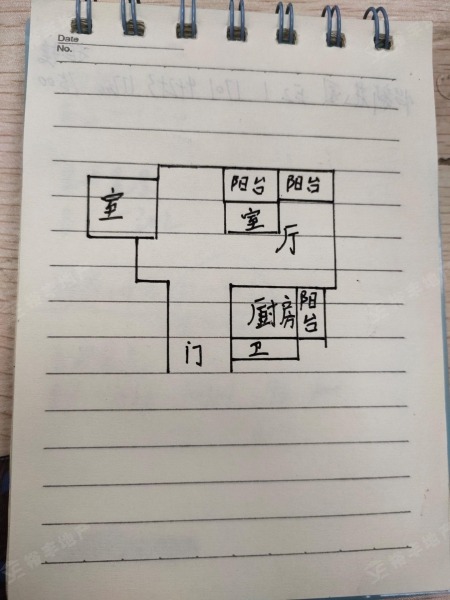 Date
No.
阳台 阳台
室 室
厅
厨房 阳台
门 卫